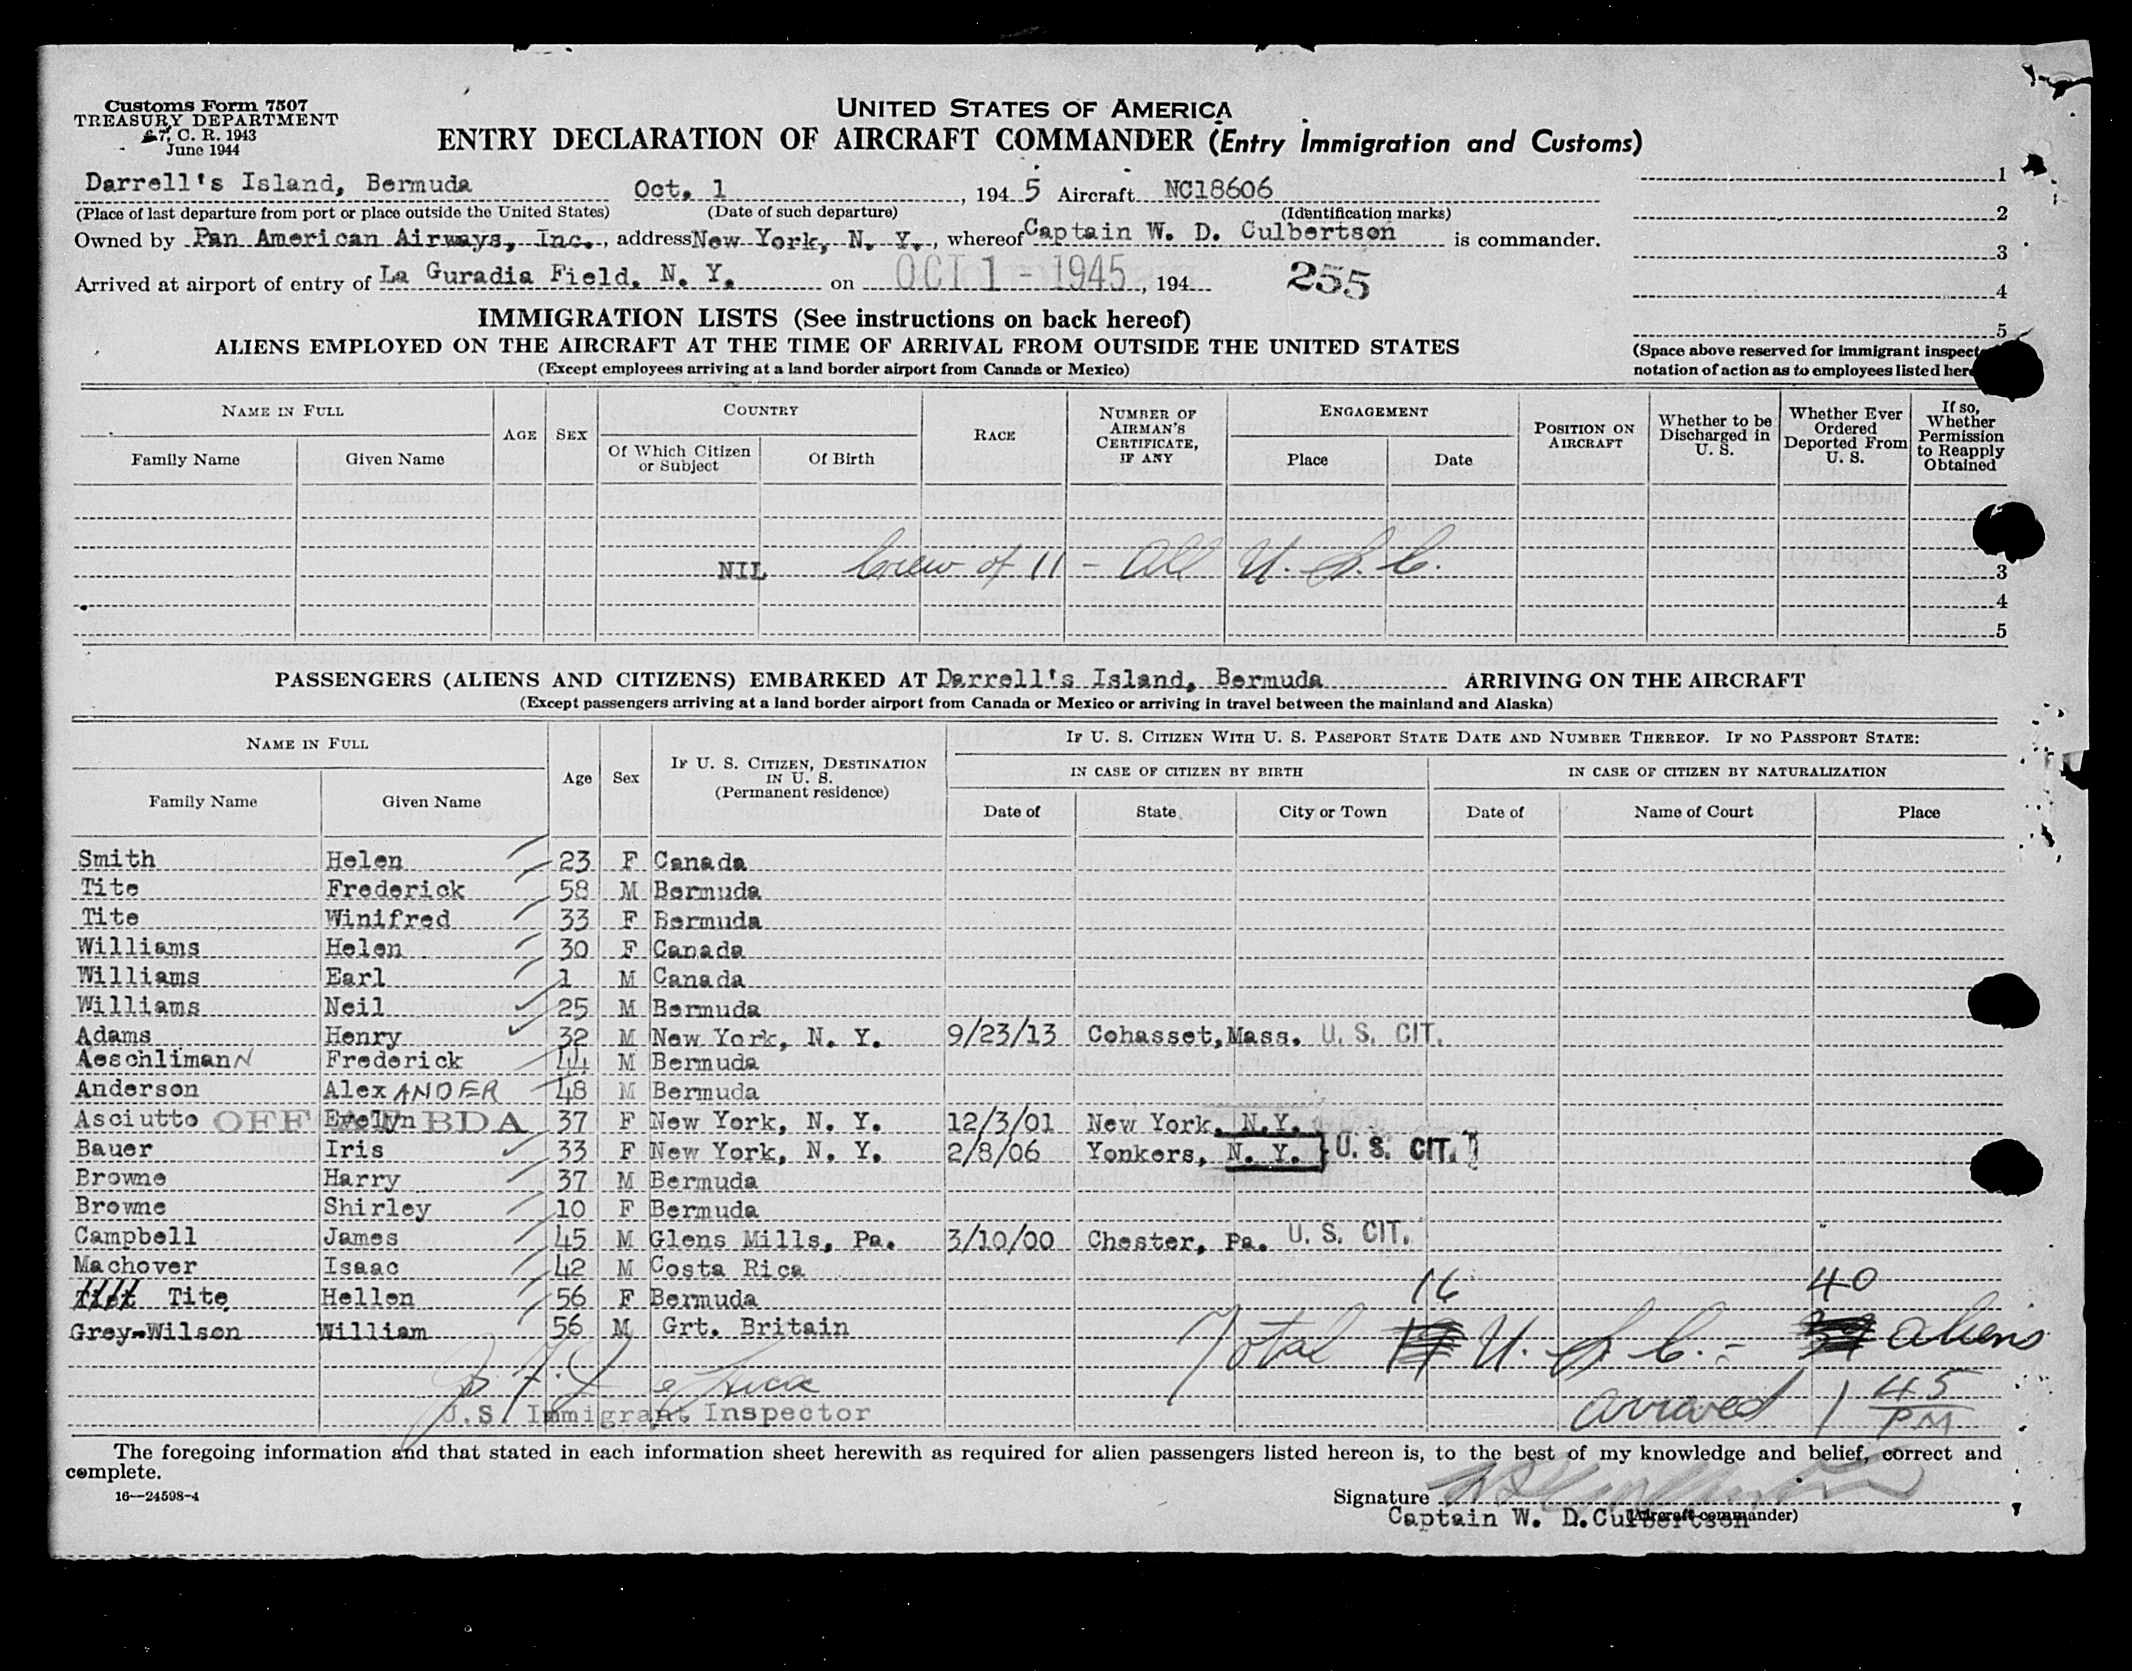 Customs Form 7507
TREASURY DEPARTMENT
7, C. R. 1943
June 1944
UNITED STATES OF AMERICA
ENTRY DECLARATION OF AIRCRAFT COMMANDER (Entry Immigration and Customs)
Darrell's Island, Bermuda Oct. 1, 1945 Aircraft NC18606
(Place of last departure from port or place outside the United States) (Date of such departure) (Identification marks)
Owned by Pan American Airways, Inc., address New York, N. Y., whereof Captain W. D. Culbertson is commander.
Arrived at airport of entry of La Guradia Field, N. Y. on OCT 1 - 1945, 194 255
1
2
3
4
5
(Space above reserved for immigrant inspect
notation of action as to employees listed her
IMMIGRATION LISTS (See instructions on back hereof)
ALIENS EMPLOYED ON THE AIRCRAFT AT THE TIME OF ARRIVAL FROM OUTSIDE THE UNITED STATES
(Except employees arriving at a land border airport from Canada or Mexico)
NAME IN FULL
Family Name Given Name
AGE SEX
COUNTRY
Of Which Citizen or Subject Of Birth
RACE
NUMBER OF AIRMAN'S CERTIFICATE, IF ANY
ENGAGEMENT
Place Date
POSITION ON AIRCRAFT
Whether to be Discharged in U. S.
Whether Ever Ordered Deported From U. S.
If so, Whether Permission to Reapply Obtained
NIL Crew of 11 - All U. S. C. 3
4
5
PASSENGERS (ALIENS AND CITIZENS) EMBARKED AT Darrell's Island, Bermuda ARRIVING ON THE AIRCRAFT
(Except passengers arriving at a land border airport from Canada or Mexico or arriving in travel between the mainland and Alaska)
NAME IN FULL
Family Name Given Name
Age Sex
IF U. S. CITIZEN, DESTINATION IN U. S. (Permanent residence)
IF U. S. CITIZEN WITH U. S. PASSPORT STATE DATE AND NUMBER THEREOF. IF NO PASSPORT STATE:
IN CASE OF CITIZEN BY BIRTH IN CASE OF CITIZEN BY NATURALIZATION
Date of State City or Town Date of Name of Court Place
Smith Helen 23 F Canada
Tite Frederick 58 M Bermuda
Tite Winifred 33 F Bermuda
Williams Helen 30 F Canada
Williams Earl 1 M Canada
Williams Neil 25 M Bermuda
Adams Henry 32 M New York, N. Y. 9/23/13 Cohasset, Mass. U. S. CIT.
AeschlimanN Frederick 44 M Bermuda
Anderson AlexANDER 48 M Bermuda
Asciutto Evelyn OFF AT BDA 37 F New York, N. Y. 12/3/01 New York, N.Y.
Bauer Iris 33 F New York, N. Y. 2/8/06 Yonkers, N. Y. U. S. CIT.
Browne Harry 37 M Bermuda
Browne Shirley 10 F Bermuda
Campbell James 45 M Glens Mills, Pa. 3/10/00 Chester, Pa. U. S. CIT.
Machover Isaac 42 M Costa Rica
Tite Hellen 56 F Bermuda 16 40
Grey-Wilson William 56 M Grt. Britain Total 17 U. S. C. - 39 aliens
U.S. Immigrant Inspector arrived 1 45 PM
The foregoing information and that stated in each information sheet herewith as required for alien passengers listed hereon is, to the best of my knowledge and belief, correct and
complete.
16—24598-4
Signature
Captain W. D. Culbertson (Aircraft commander)